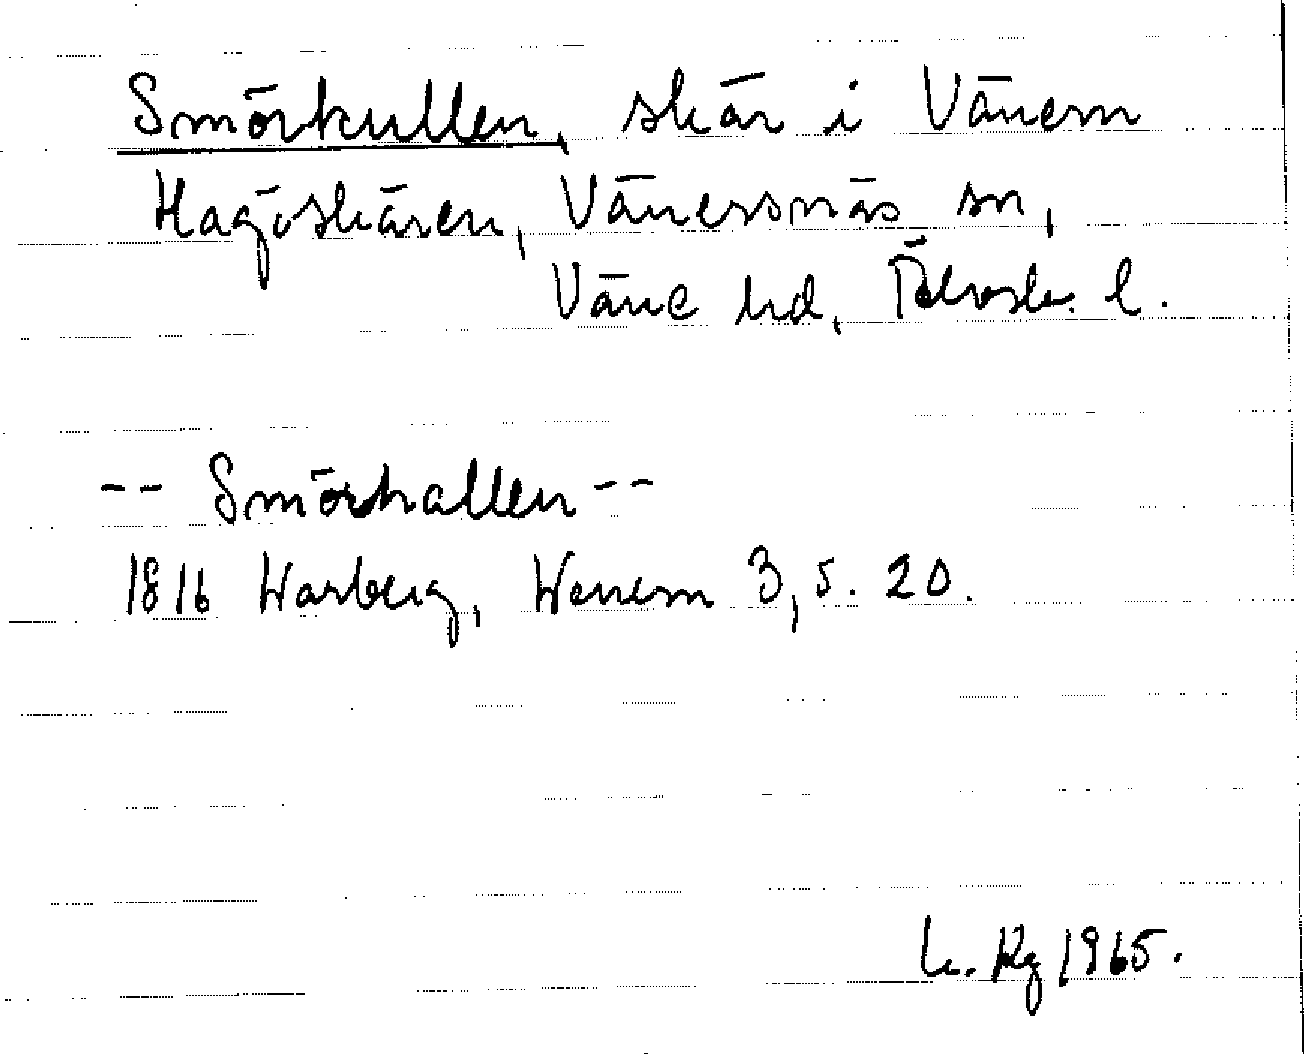 Smörkullen, skär i Vänern
Hagöskären, Vänersnäs sn,
Väne hd, Älvsb. l.
-- Smörhallen --
1816 Warberg, Wenern 3, s. 20.
Rg 1965.